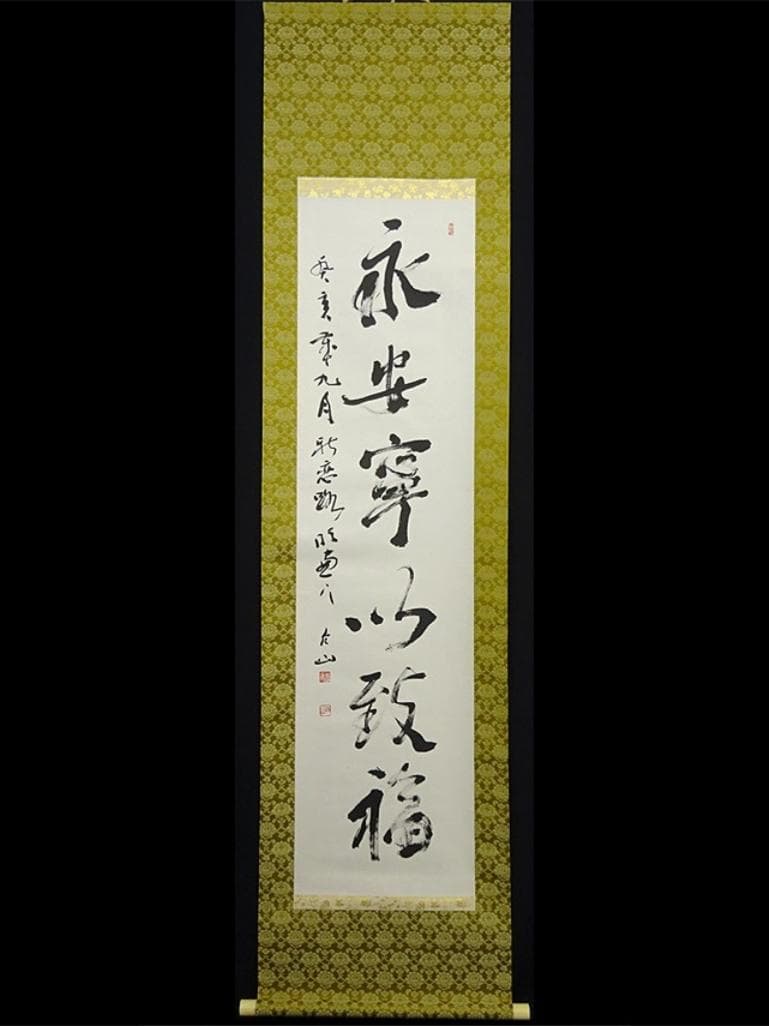 永安寧以致福
癸亥年九月 於恋 山